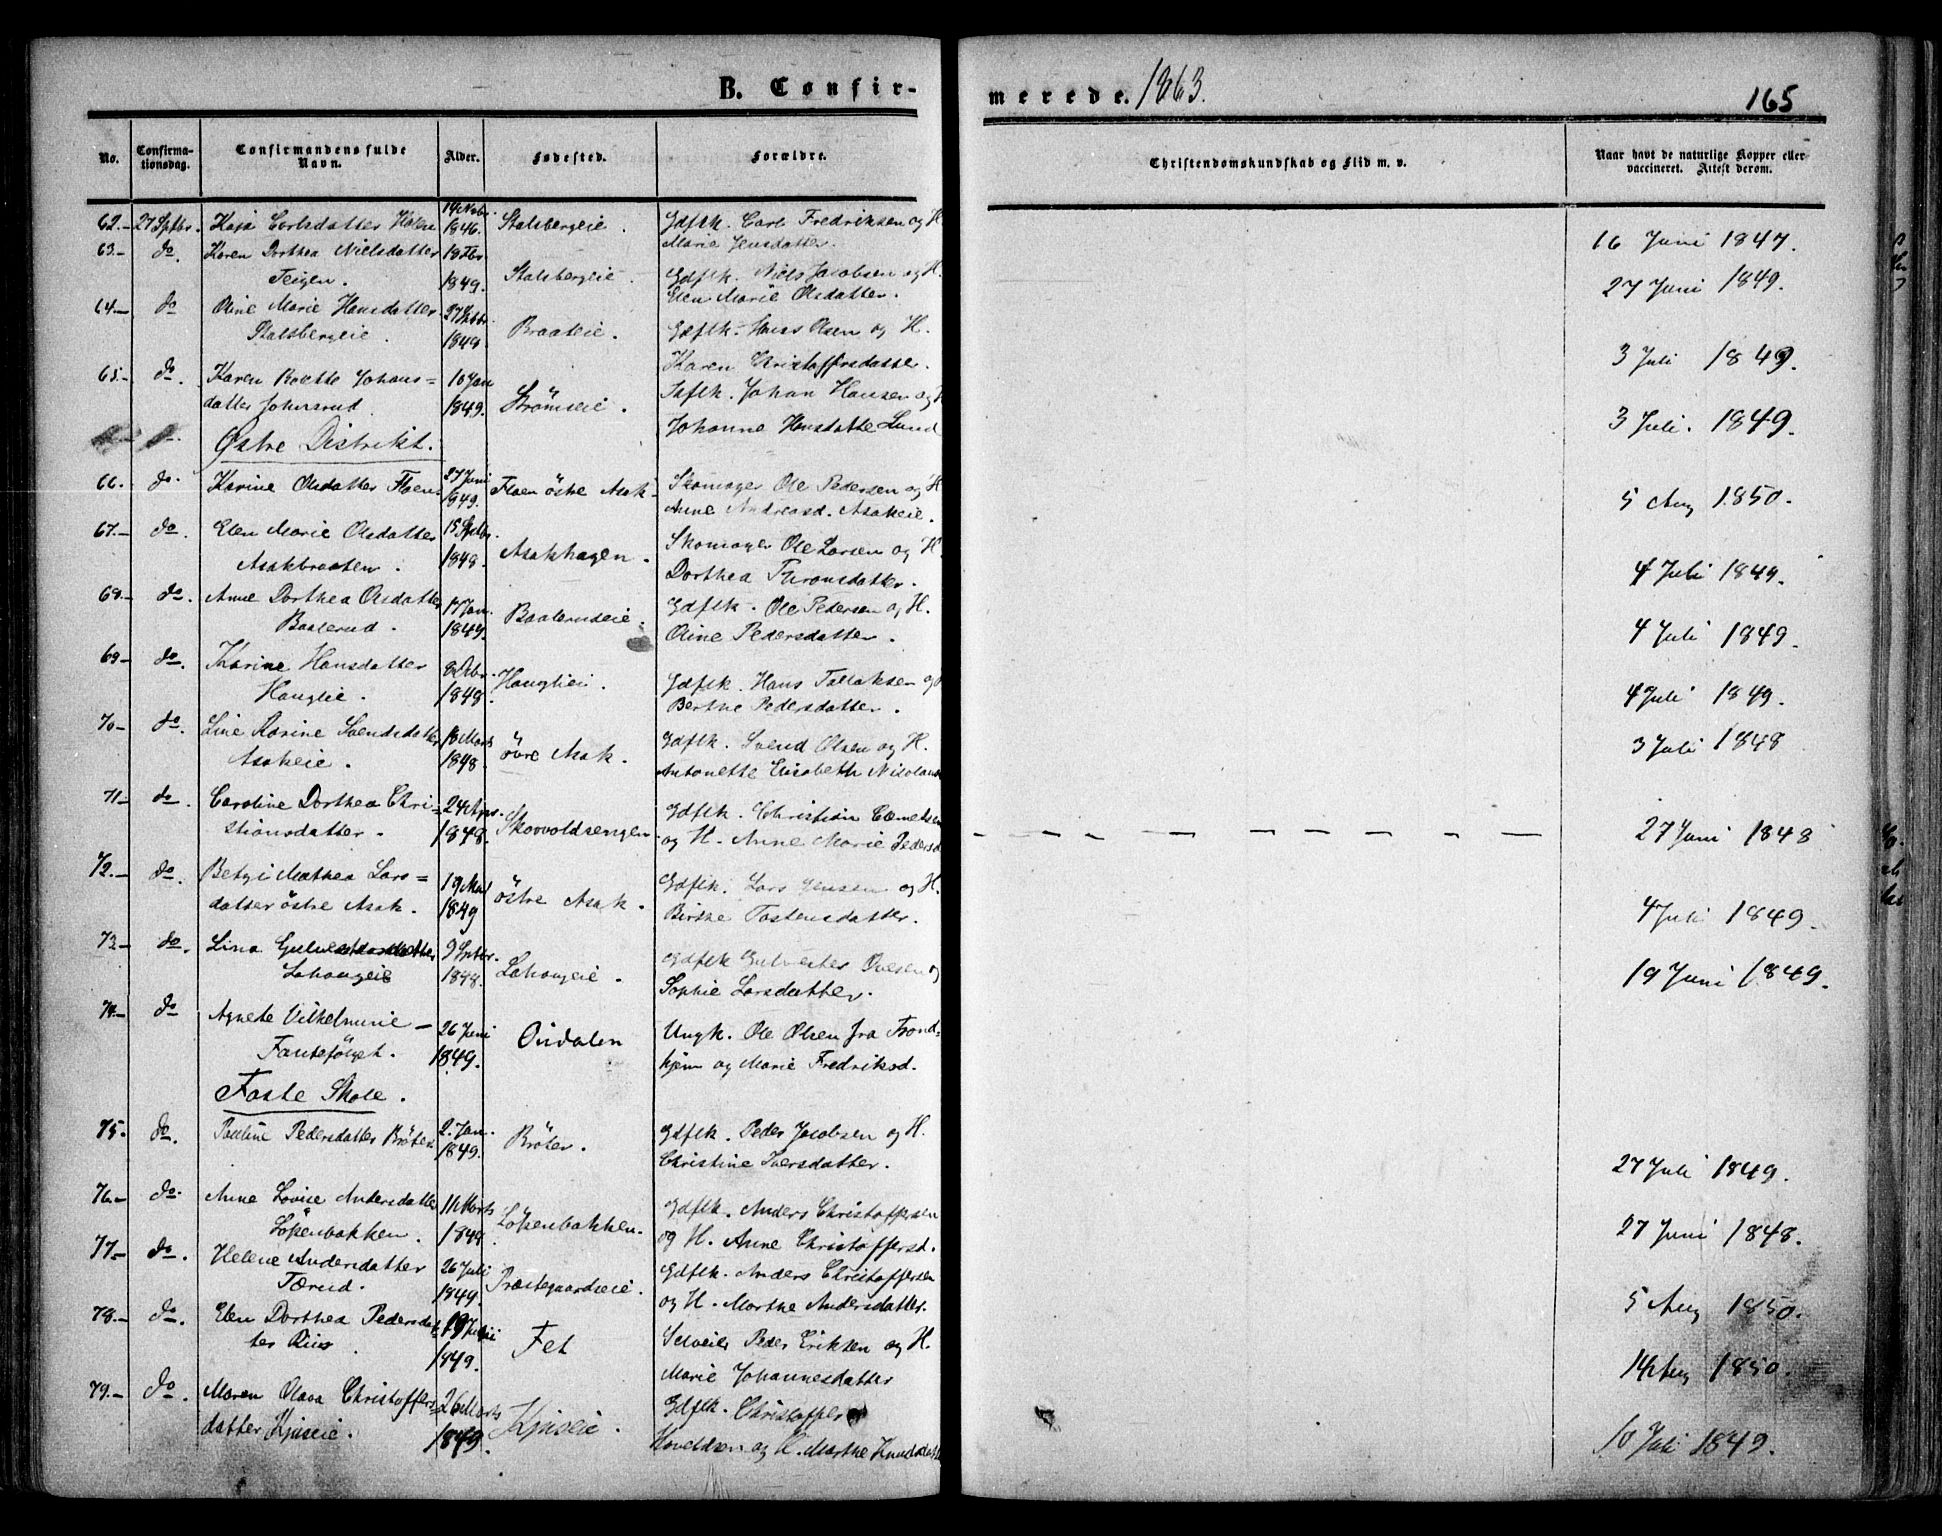 B. Confir-
merede. 1863.
165
No.
Confirma-
tionsdag.
Confirmandens fulde
Navn.
Alder.
Fødested.
Forældre.
Christendomskundskab og Flid m. v.
Naar havt de naturlige Kopper eller
vaccineret. Attest derom.
62.— 27 Sptbr. Kaja Carlsdatter 1846. Stalsbergeie. Gdflk. Carl Fredriksen og H.
Marie Jensdatter.
16 Juni 1847.
63.— do. Karen Dorthea Nielsdatter
Teigen. 1849. Stalsbergeie. Gdflk. Niels Jacobsen og H.
Elen Marie Olsdatter.
27 Juni 1849.
64— do Oline Marie Hansdatter
Stalsbergeie. 1849. Braateie. Gdflk. Hans Olsen og H.
Karen Christoffersdatter.
3 Juli 1849.
65.— do. Karen Johans=
datter 10 Jan 1849. Strömseie. Johan Hansen og
Johanne Hansdatter Lund
3 Juli. 1849.
Østre Distrikt.
66. do. Karine Olsdatter Floen 27 Juni 1849. Floen östre Asak. Skomager Ole Pedersen og H
Anne Andreasd. Asakeie.
5 Aug 1850.
67.— do. Elen Marie Olsdatter
Asakbraaten. 15 Sptbr. 1848. Asakhagen. Skomager Ole Larsen og H.
Dorthea Thronsdatter.
4 Juli 1849.
68.— do. Anne Dorthea Olsdatter
Baalerud. 17 Jan. 1849. Baalerudeie. Gdflk. Ole Pedersen og H.
Oline Pedersdatter.
4 Juli 1849.
69— do. Karine Hansdatter
Haugleie. 1848. Hauglieie. Gdflk. Hans Tollaksen og
Berthe Pedersdatter.
4 Juli 1849.
70— do. Line Karine Svendsdatter
Asakeie. 18 Marts 1848. övre Asak. Gdflk. Svend Olsen og H.
Antonette Elisabeth
3 Juli 1848
71— do. Caroline Dorthea Chri=
stiansdatter. 24 Apr. 1848. Skovvoldsengen. Gdflk. Christian
og H. Anne Marie Pedersd
27 Juni 1848
72.— do. Betzi Mathea Lars=
datter östre Asak. 19 1849 östre Asak. Gdflk. Lars Jensen og H.
Birthe Tostensdatter.
4 Juli 1849.
73— do. Lina
Lahaugeie 9 Sptbr. 1848. Lahaugeie. Gdflk og
Sophie Larsdatter.
19 Juni 1849.
74.— do Agnete Vilhelmine —
Fantefölget. 26 Juni 1849. Ungk. Ole Olsen fra Trond-
hjem og Marie Fredriksd.
Faste Skole.
75. do. Pauline Pedersdatter Bröter 2. Jan. 1849. Bröter. Gdflk. Peder Jacobsen og H.
Christine Iversdatter.
27 Juli 1849.
76.— do. Anne Lovise Andersdatter
Lökenbakken. 11 Marts 1848. Lökenbakken. Gdflk. Anders Christoffersen
og H. Anne Christoffersd.
27 Juni 1848.
77— do. Helene Andersdatter
Tærud. 26 Juli 1849. Præstegaardseie. Gdflk. Anders Christoffersen
og H. Marthe Andersdatter.
5 Aug 1850.
78.— do. Elen Dorthea Pedersdat
ter Riis. 1849. Fet Selveier Peder Eriksen og H.
Marie Johannesdatter
14 Aug 1850.
79.— do. Maren Olava Christoffers=
datter Kjuseie. 26 Marts 1849. Kjuseie. Gdflk. Christoffer
og H. Marthe Knudsdatter
10 Juli 1849.